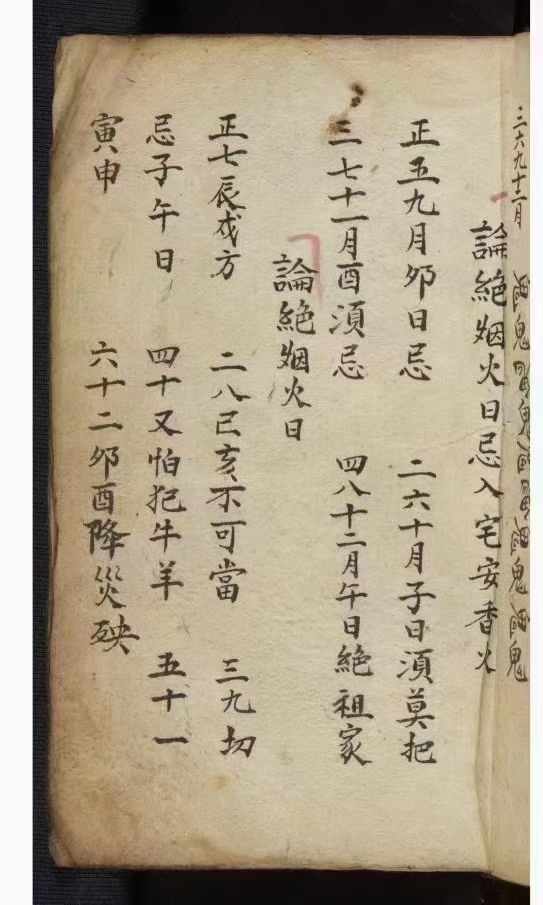 三六九十二月
論絕烟火日忌入宅安香火
正五九月卯日忌 二六十月子日須莫把
三七十一月酉須忌 四八十二月午日絕祖家
論絕烟火日
正七辰戌方 二八巳亥不可當 三九切
忌子午日 四十又怕犯牛羊 五十一
寅申 六十二卯酉降災殃